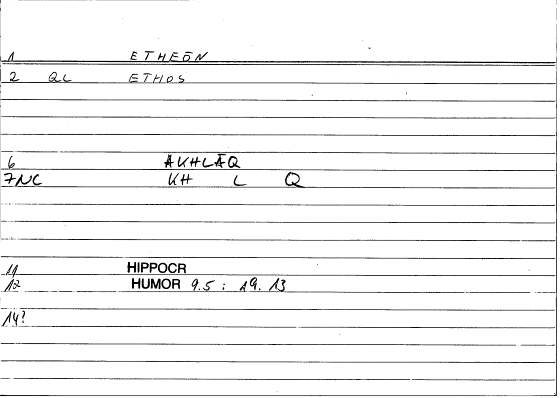 1 ETHEŌN
2 QL ETHOS
6 AKHLĀQ
7NC KH L Q
11 HIPPOCR
12 HUMOR 9.5 : 19.13
14?